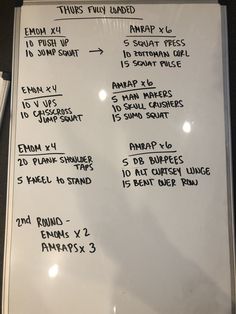 THURS FULLY LOADED
EMOM x4
10 PUSH UP
10 JUMP SQUAT →
AMRAP x6
5 SQUAT PRESS
10 ZOTTOMAN CURL
15 SQUAT PULSE
EMOM x4
10 V UPS
10 CRISSCROSS
JUMP SQUAT
AMRAP x6
5 MAN MAKERS
10 SKULL CRUSHERS
15 SUMO SQUAT
EMOM x4
20 PLANK SHOULDER
TAPS
5 KNEEL TO STAND
AMRAP x6
5 DB BURPEES
10 ALT CURTSEY LUNGE
15 BENT OVER ROW
2nd ROUND -
EMOMS x 2
AMRAPS x 3